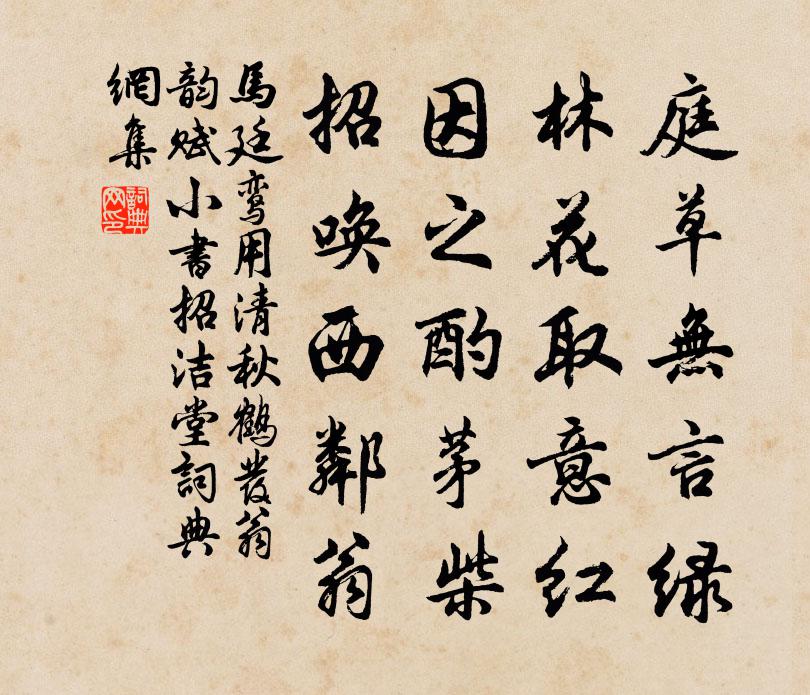 庭草無言緑
林花取意紅
因之酌茅柴
招唤西鄰翁
馬廷鸾用清秋鶴發翁
韵赋小書招洁堂詞典
網集
詞典网印